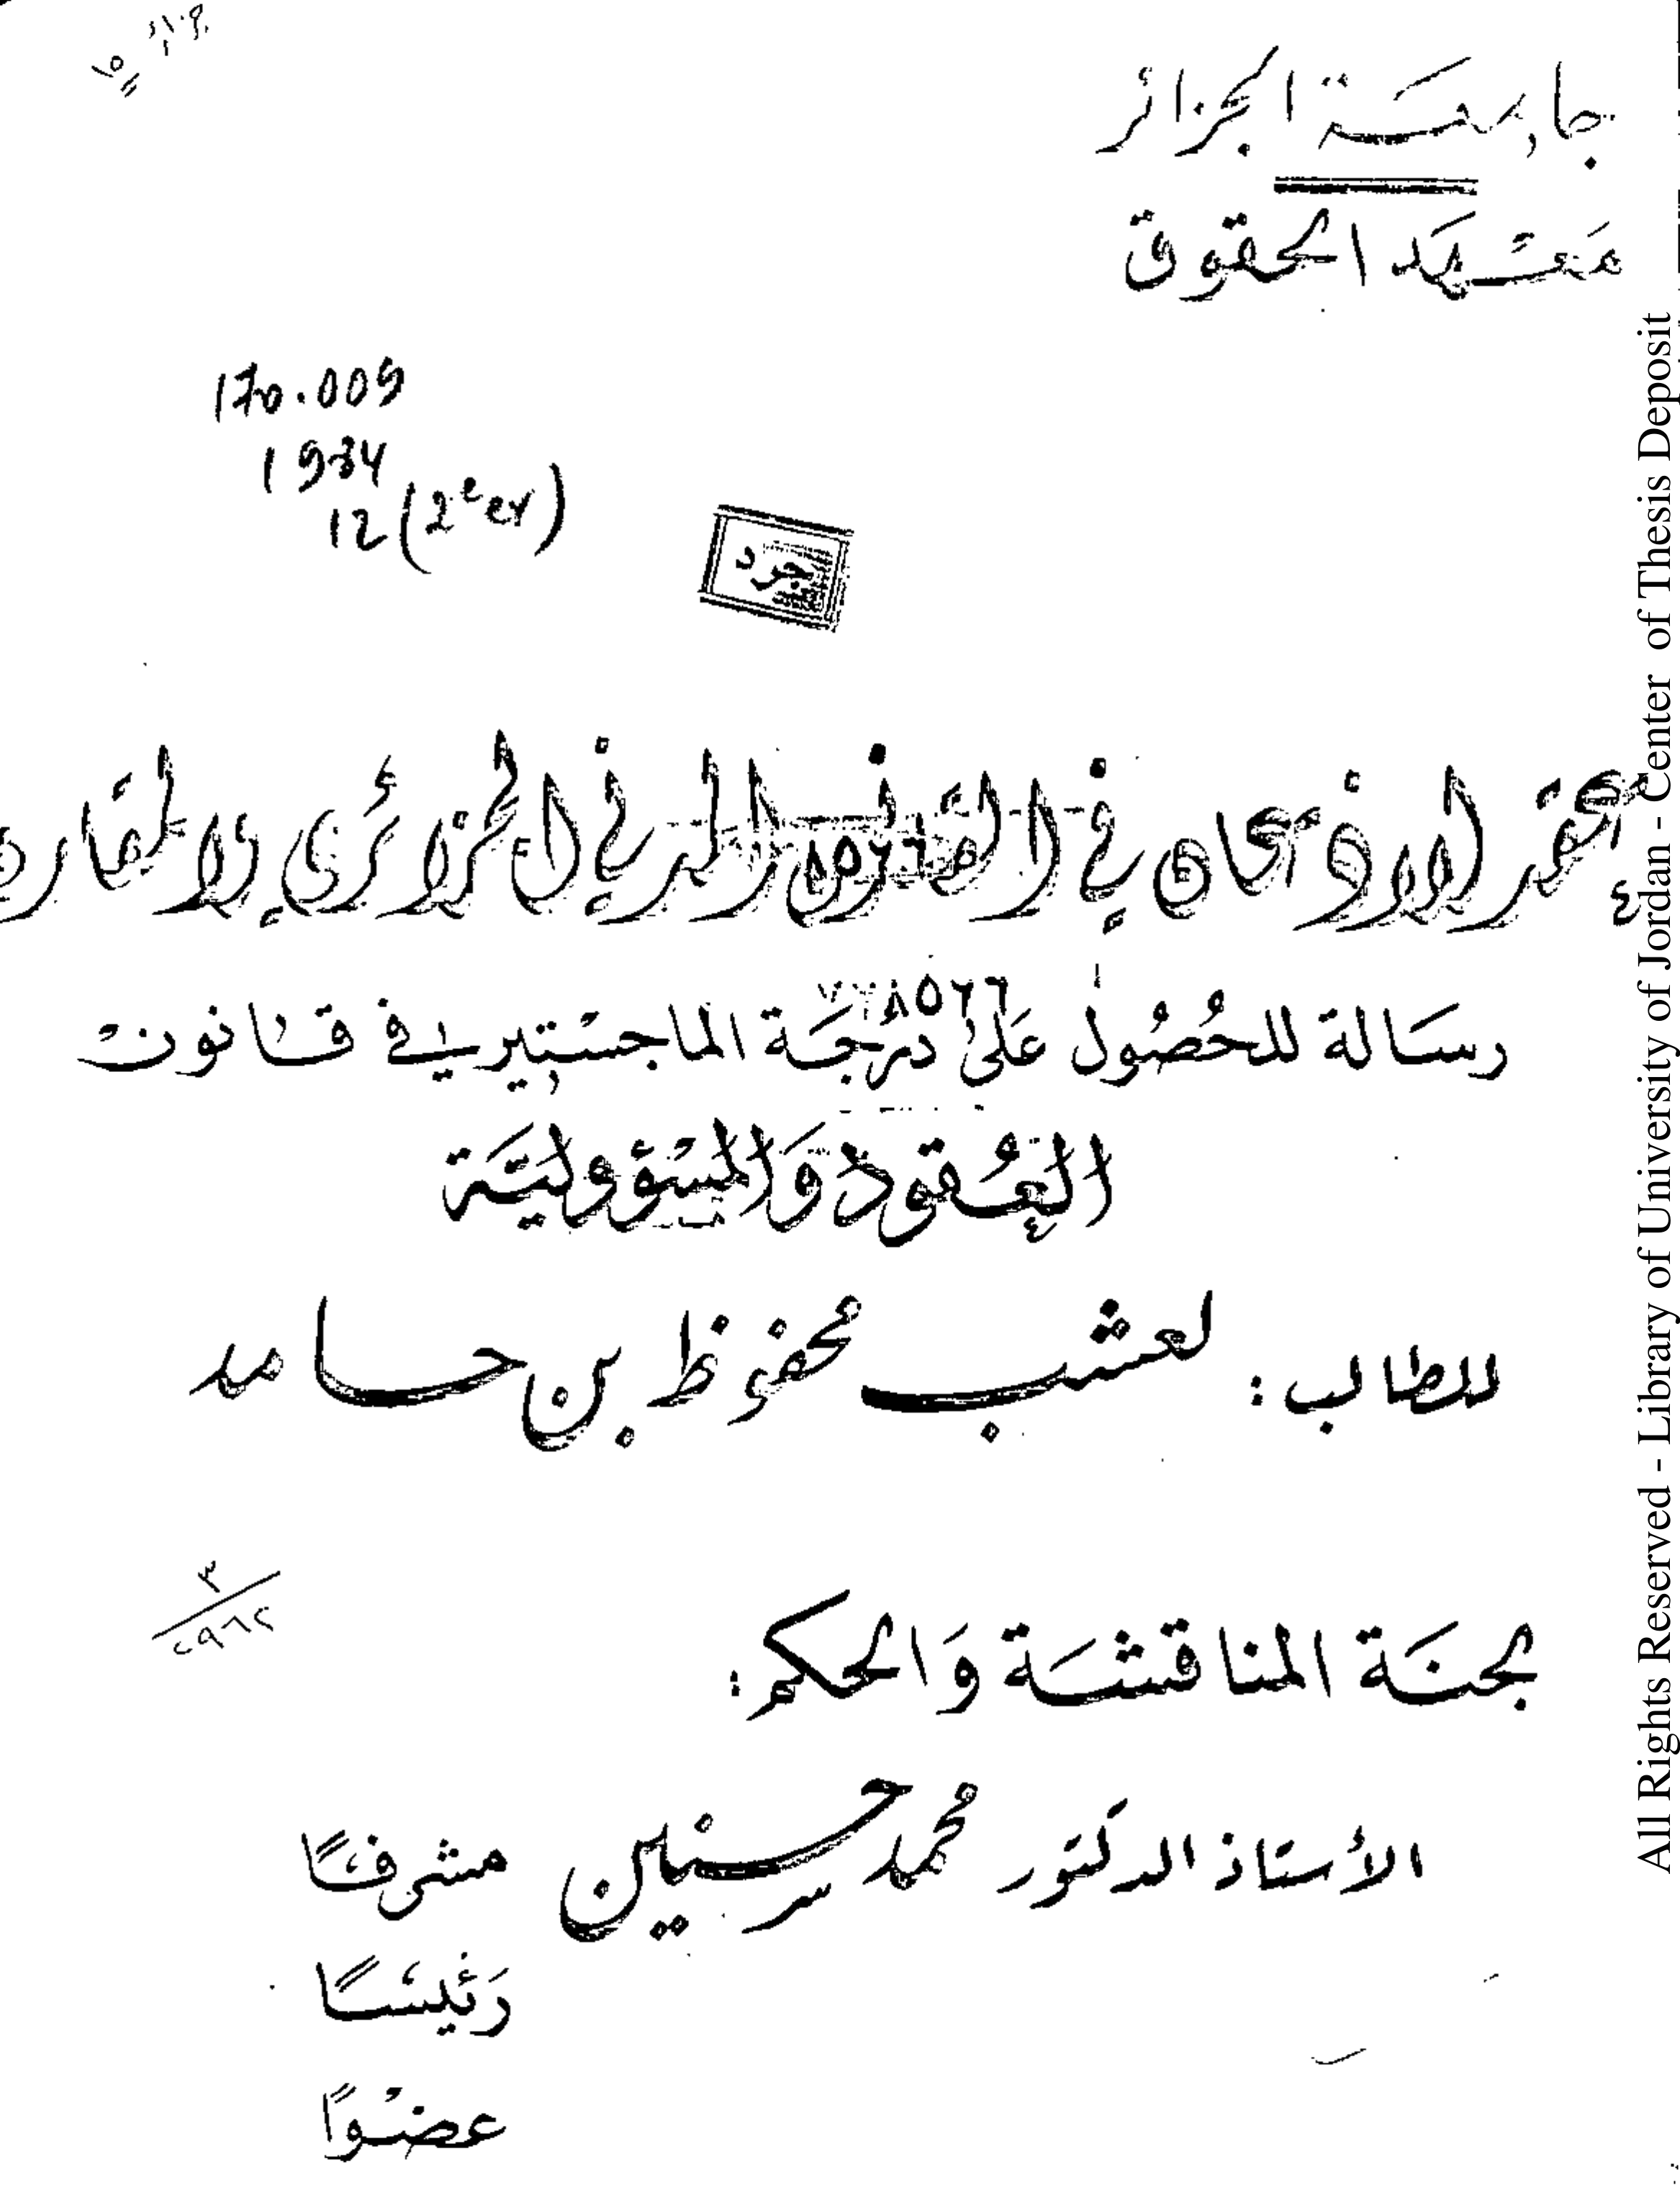 جامعة الجزائر
معهد الحقوق
170.009
1984
12 (2e ex)
جرد
عقد الإذعان في القانون المدني الجزائري والمقارن
٨٥٦٦
٨٥٦٦
رسَالة للحُصُول عَلى درجَة الماجسْتير في قانون
العُقود وَالمسْؤوليَّة
للطالب : لعشب محفوظ بن حامد
٣
٢٩٦٢
لجنَة المناقشَة وَالحكم :
الأستاذ الدكتور محمد حسنين مشرفًا
رَئيسًا
عضْوًا
All Rights Reserved - Library of University of Jordan - Center of Thesis Deposit